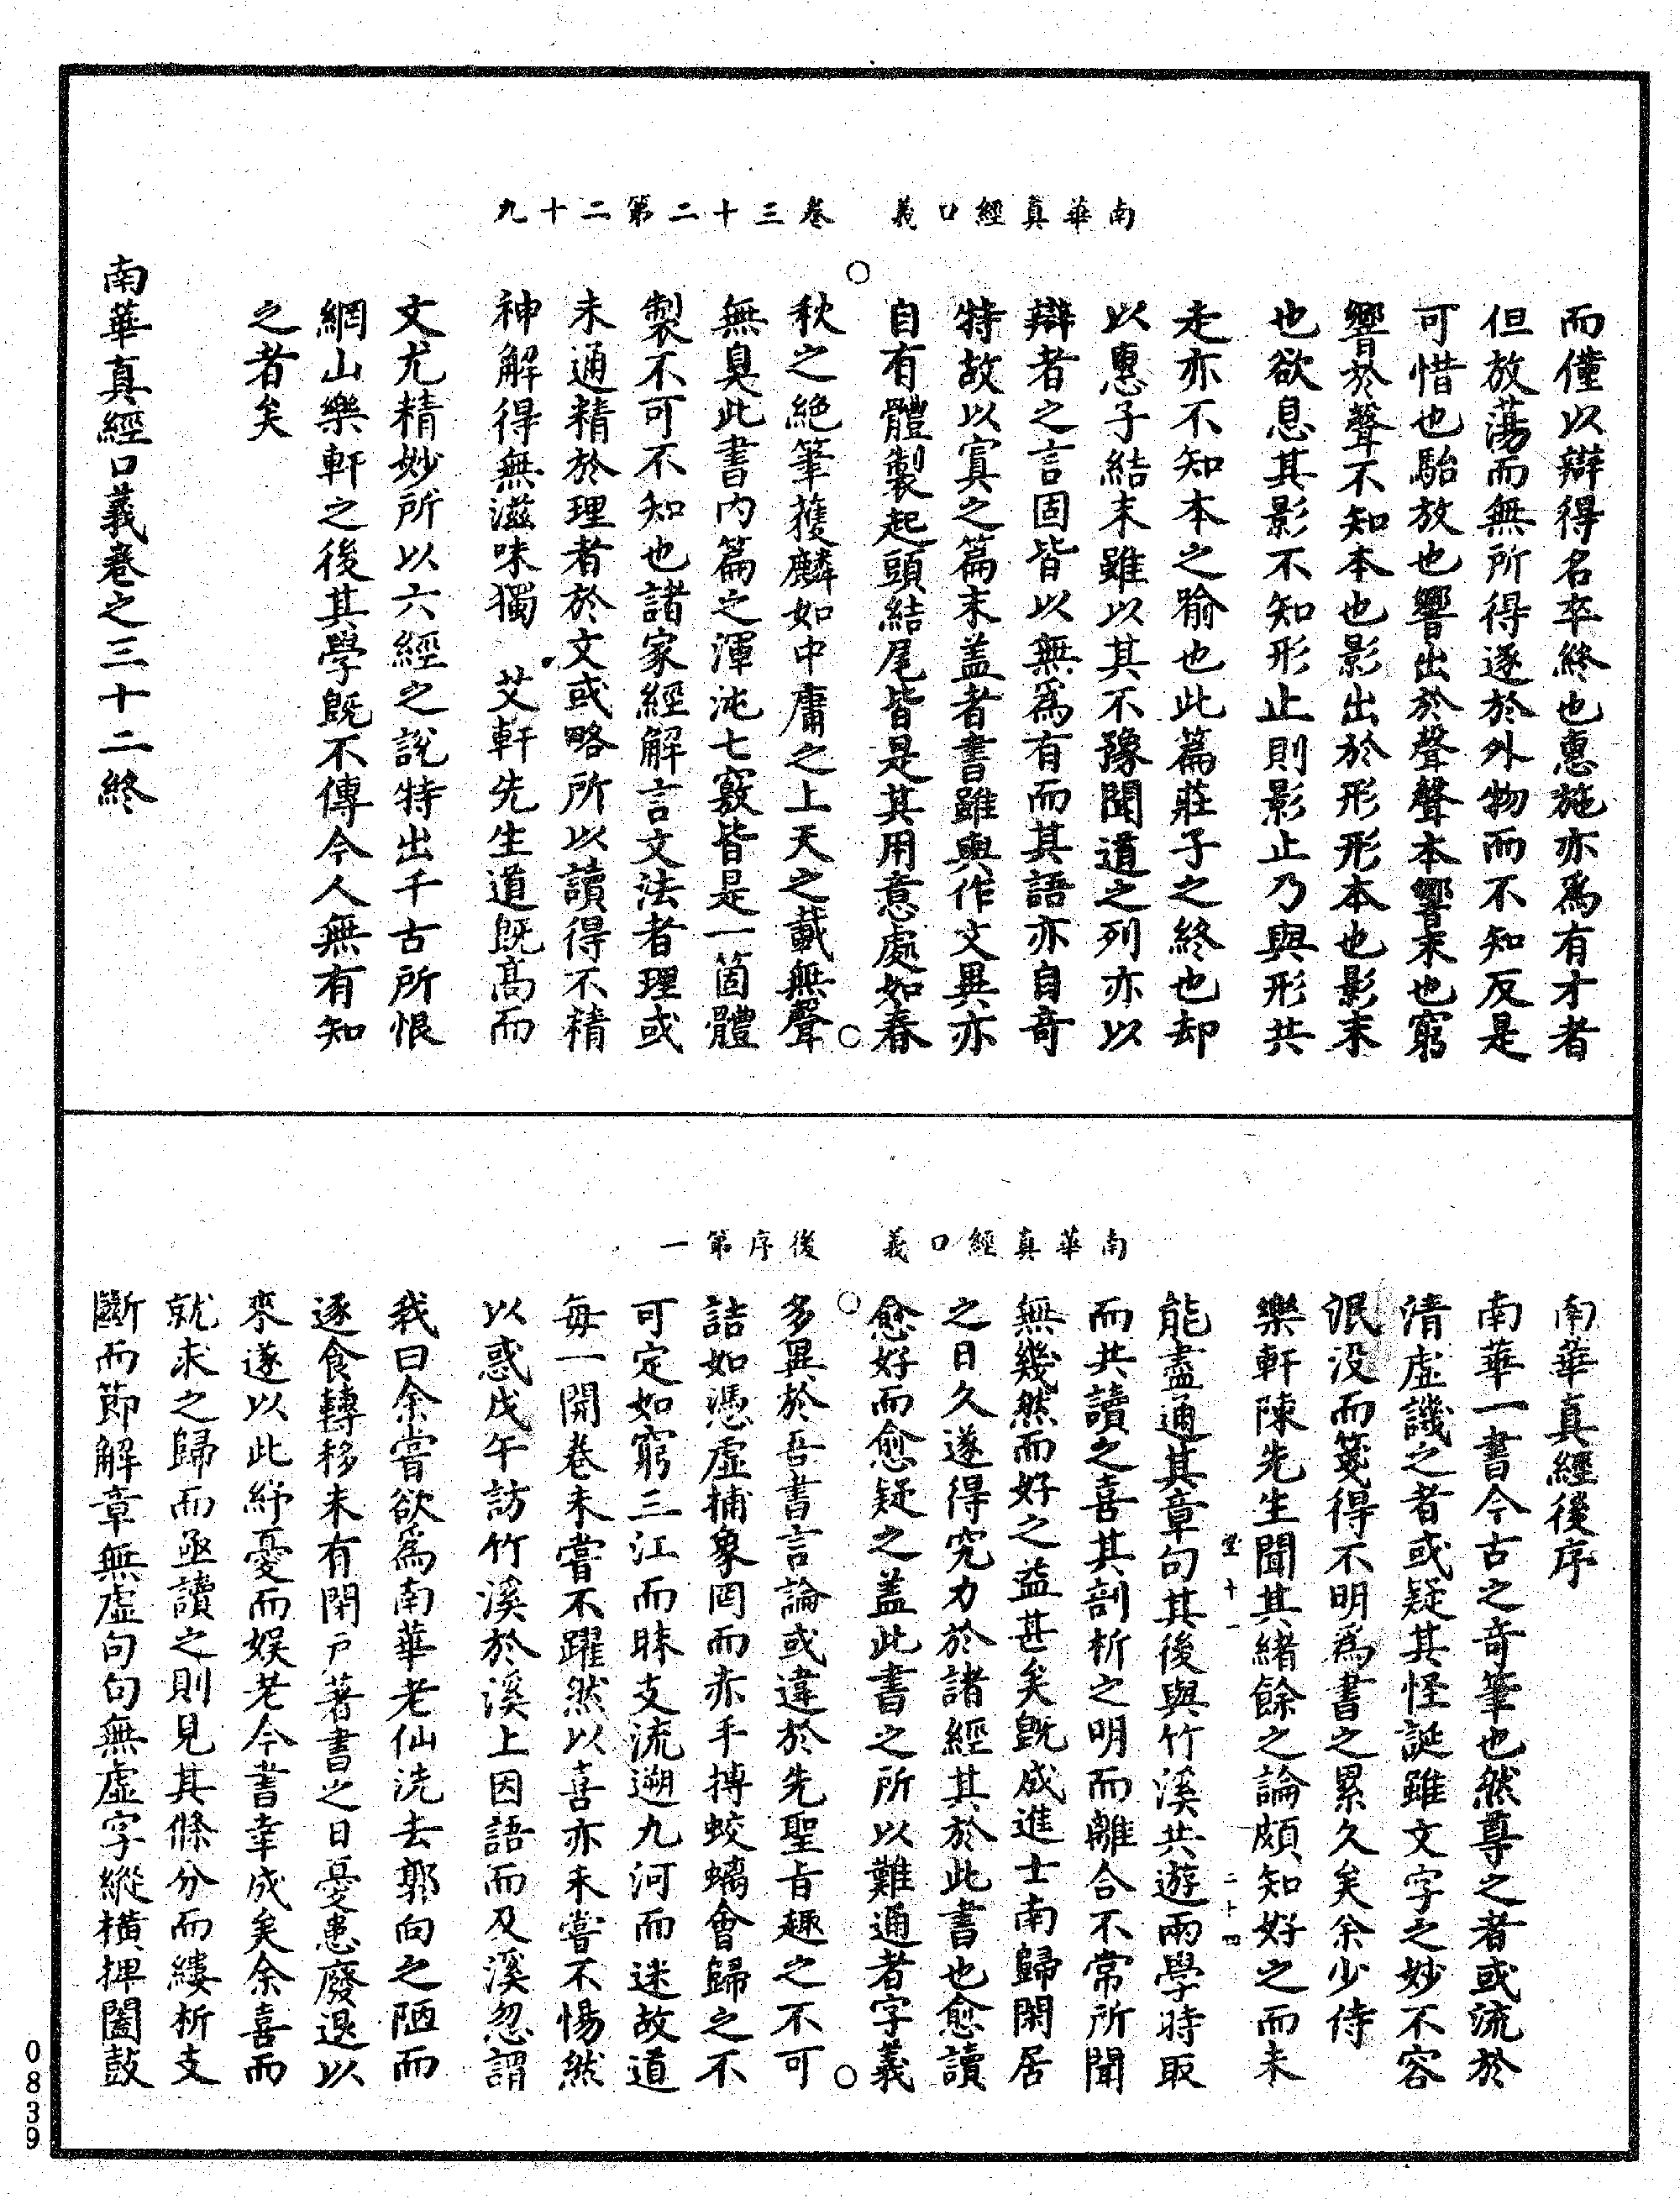 南華真經口義　卷三十二第二十九
而僅以辯得名卒終也惠施亦爲有才者
但放蕩而無所得遂於外物而不知反是
可惜也駘放也響出於聲聲本響末也窮
響於聲不知本也影出於形形本也影末
也欲息其影不知形止則影止乃與形共
走亦不知本之喻也此篇莊子之終也却
以惠子結末雖以其不豫聞道之列亦以
辯者之言固皆以無爲有而其語亦自奇
特故以寘之篇末盖者書雖與作文異亦
自有體製起頭結尾皆是其用意處如春
秋之絶筆獲麟如中庸之上天之載無聲
無臭此書内篇之渾沌七竅皆是一箇體
製不可不知也諸家經解言文法者理或
未通精於理者於文或略所以讀得不精
神解得無滋味獨　艾軒先生道既髙而
文尤精妙所以六經之説特出千古所恨
網山樂軒之後其學既不傳今人無有知
之者矣
南華真經口義卷之三十二終
南華真經口義　後序第一
南華真經後序
南華一書今古之奇筆也然尊之者或流於
清虚譏之者或疑其怪誕雖文字之妙不容
泯没而箋得不明爲書之累久矣余少侍
樂軒陳先生聞其緒餘之論頗知好之而未
𡘜十一　二十四
能盡通其章句其後與竹溪共遊兩學時取
而共讀之喜其剖析之明而離合不常所聞
無幾然而好之益甚矣既成進士南歸閑居
之日久遂得究力於諸經其於此書也愈讀
愈好而愈疑之盖此書之所以難通者字義
多異於吾書言論或違於先聖旨趣之不可
詰如憑虚捕象罔而亦手搏蛟螭會歸之不
可定如窮三江而昧支流遡九河而迷故道
毎一開卷未嘗不躍然以喜亦未嘗不惕然
以惑戊午訪竹溪於溪上因語而及溪忽謂
我曰余嘗欲爲南華老仙洗去郭向之陋而
逐食轉移未有閉户著書之日憂患廢退以
來遂以此紓憂而娱老今書幸成矣余喜而
就求之歸而亟讀之則見其條分而縷析支
斷而節解章無虚句句無虚字縱横捭闔鼓
0839